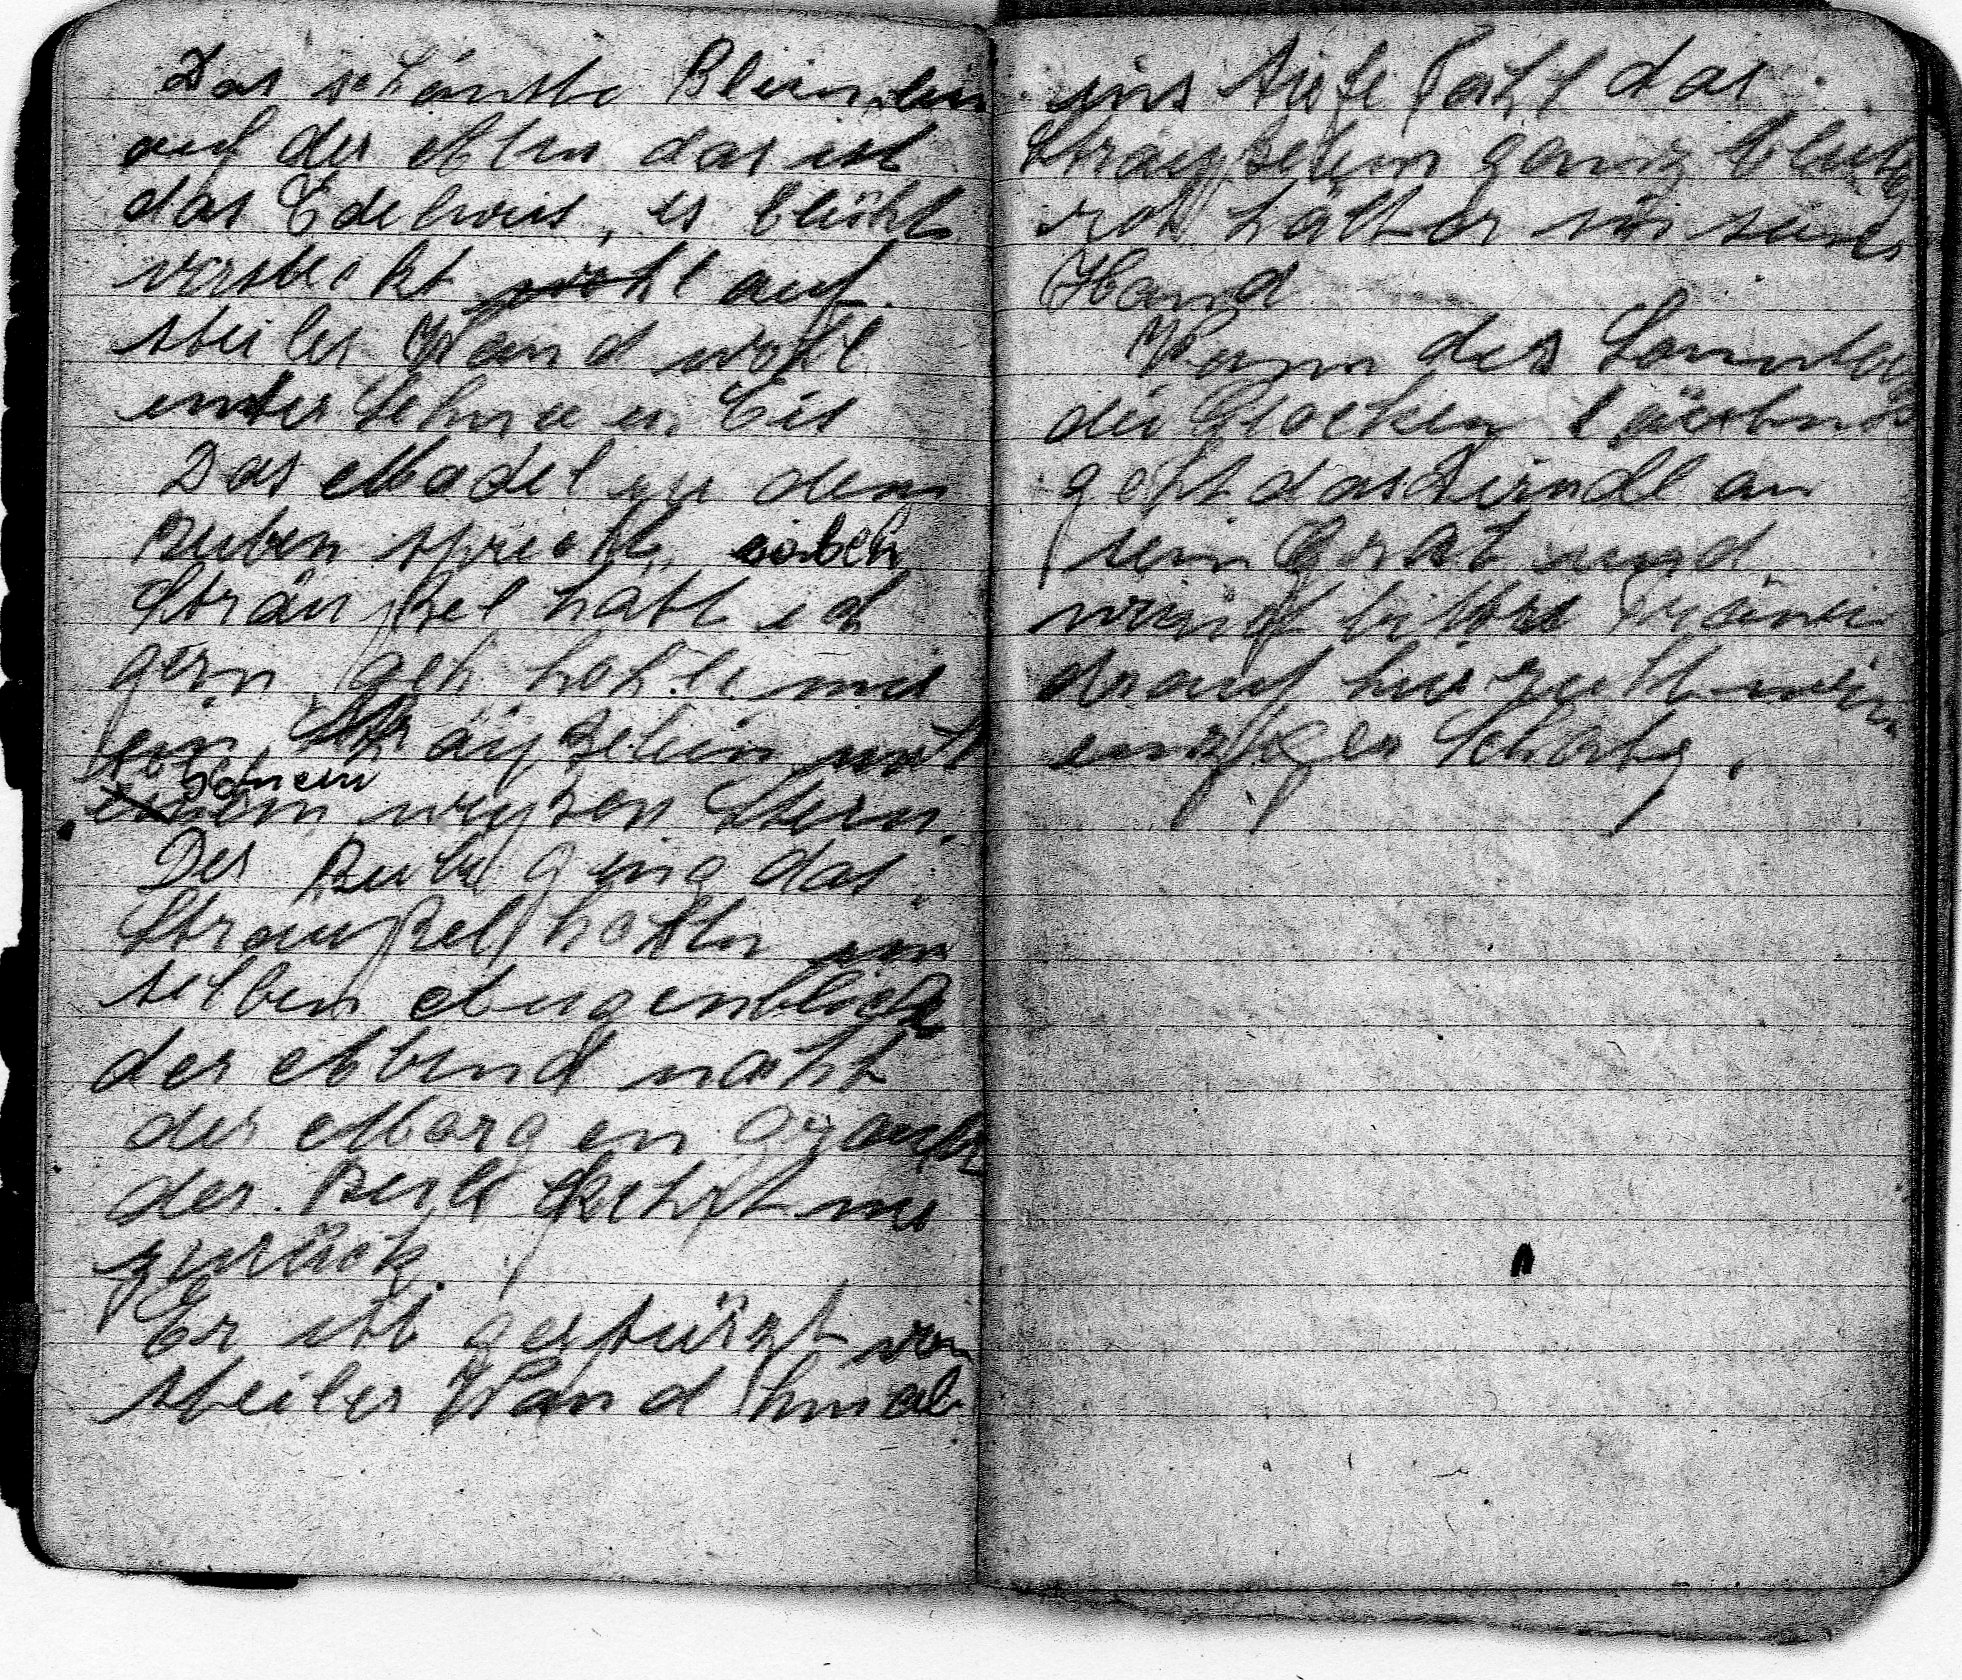 Das schönste Blümlein
auf der Alm das ist
das Edelweis, es blüht
versteckt wohl auf
steiler Wand wohl
unter Schnee u. Eis
Das Madel zu dem
Buben spricht,
Sträußel hätt ich
gern geh hohle mir
Sträußelein mit
schnein
einem weißen Stern.
Der Bube ging das
Sträußel hohln im
selben Augenblick
der Abend naht
der Morgen graut
der Bub kehrt nie
zurück.
Er ist gestürzt von
steiler Wand hinab
ins tiefe Tahl das
Sträußelein ganz blutig
rot hält er in seiner
Hand
Wenn des Sonntag
die Glocken läuten
geht das Dirndl an
sein Grab und
weint bittre
drauf hier ruht mein
einziger Schatz.